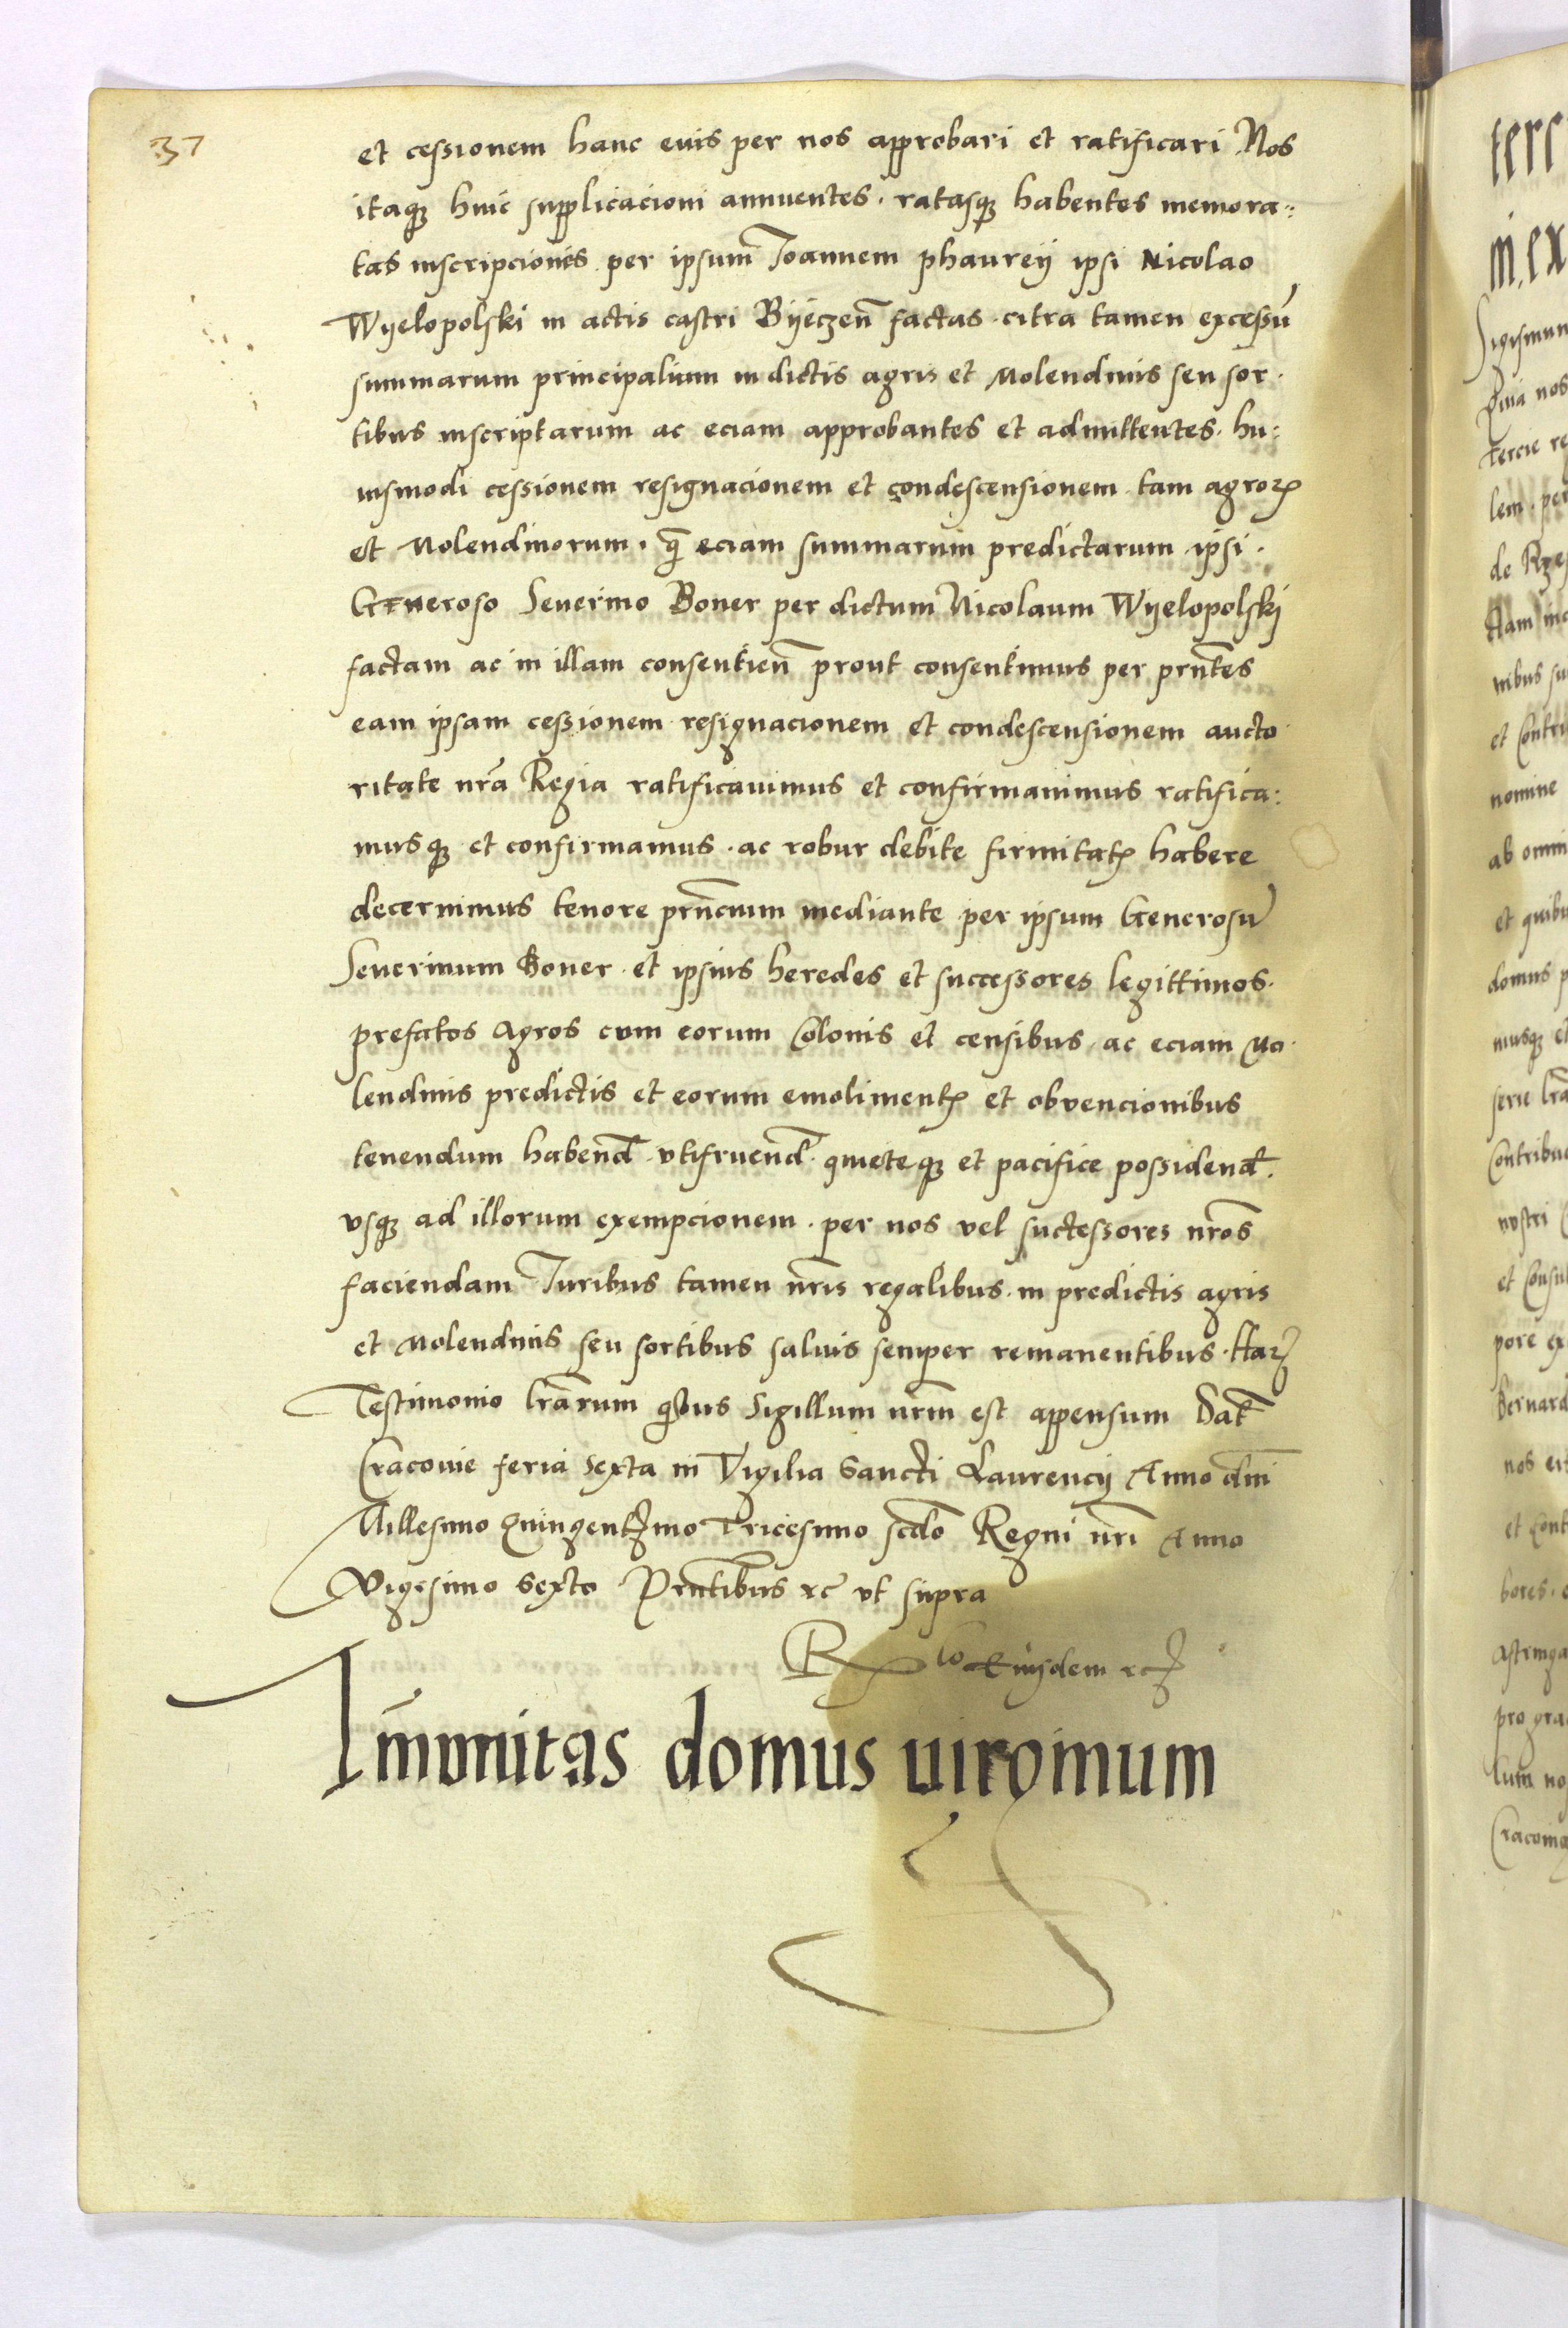 37
et cessionem hanc eius per nos approbari et ratificari Nos
itaqꝫ huic supplicacioni annuentes · ratasqꝫ habentes memora:
tas inscripciones per ipsum Joannem phaureÿ ipsi Nicolao
Wÿelopolski in actis castri Bÿeczen̄ factas · citra tamen excessū
summarum principalium in dictis agris et Molendinis seu sor·
tibus inscriptarum ac eciam approbantes et admittentes · hu:
iusmodi cessionem resignacionem et condescensionem tam agroꝝ
et Molendinorum · q̄ eciam summarum predictarum ipsi ·
Generoso Seuerino Boner per dictum Nicolaum Wÿelopolskj
factam ac in illam consentien̄ prout consentimus per prn̄tes
eam ipsam cessionem resignacionem et condescensionem aucto
ritate nr̄a Regia ratificauimus et confirmauimus ratifica:
musqꝫ et confirmamus · ac robur debite firmitatꝭ habere
decernimus tenore prn̄cium mediante per ipsum Generosū
Seuerinum Boner · et ipsius heredes et successores legittimos ·
prefatos Agros cum eorum Colonis et censibus · ac eciam Mo·
lendinis predictis et eorum emolimentꝭ et obvencionibus
tenendum habend̄ vtifruend̄ · quieteqꝫ et pacifice possidend̄ ·
vsqꝫ ad illorum exempcionem · per nos vel successores nr̄os
faciendam Juribus tamen nr̄is regalibus · in predictis agris
et Molendinis seu sortibus saluis semper remanentibus · Harꝫ
Testimonio lr̄arum qibus Sigillum nrm̄ est appensum Dat̄
Cracouie feria Sexta in Vigilia Sancti Laurencij Anno dn̄i
Millesimo Quingentꝭimo Tricesimo scd̄o Regni nr̄i Anno
Vigesimo Sexto Prn̄tibus ꝛc̄ vt supra
R͞lo Eiusdem ꝛcꝭ
Im̄unitas domus uirginum